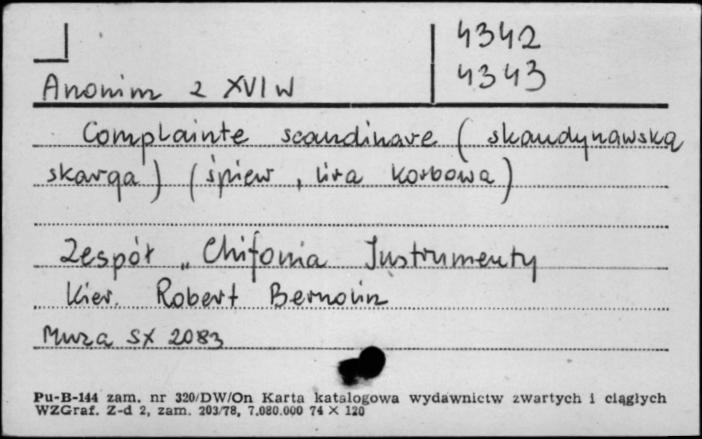 4342
4343
Anonim z XVI w
Complainte scandinave (skandynawska
skarga) (śpiew, lira korbowa)
Zespół „Chifonia Instrumenty
Kier. Robert Bernolin
Muza SX 2083
Pu-B-144 zam. nr 320/DW/On Karta katalogowa wydawnictw zwartych i ciągłych
WZGraf. Z-d 2, zam. 203/78, 7.080.000 74 × 120